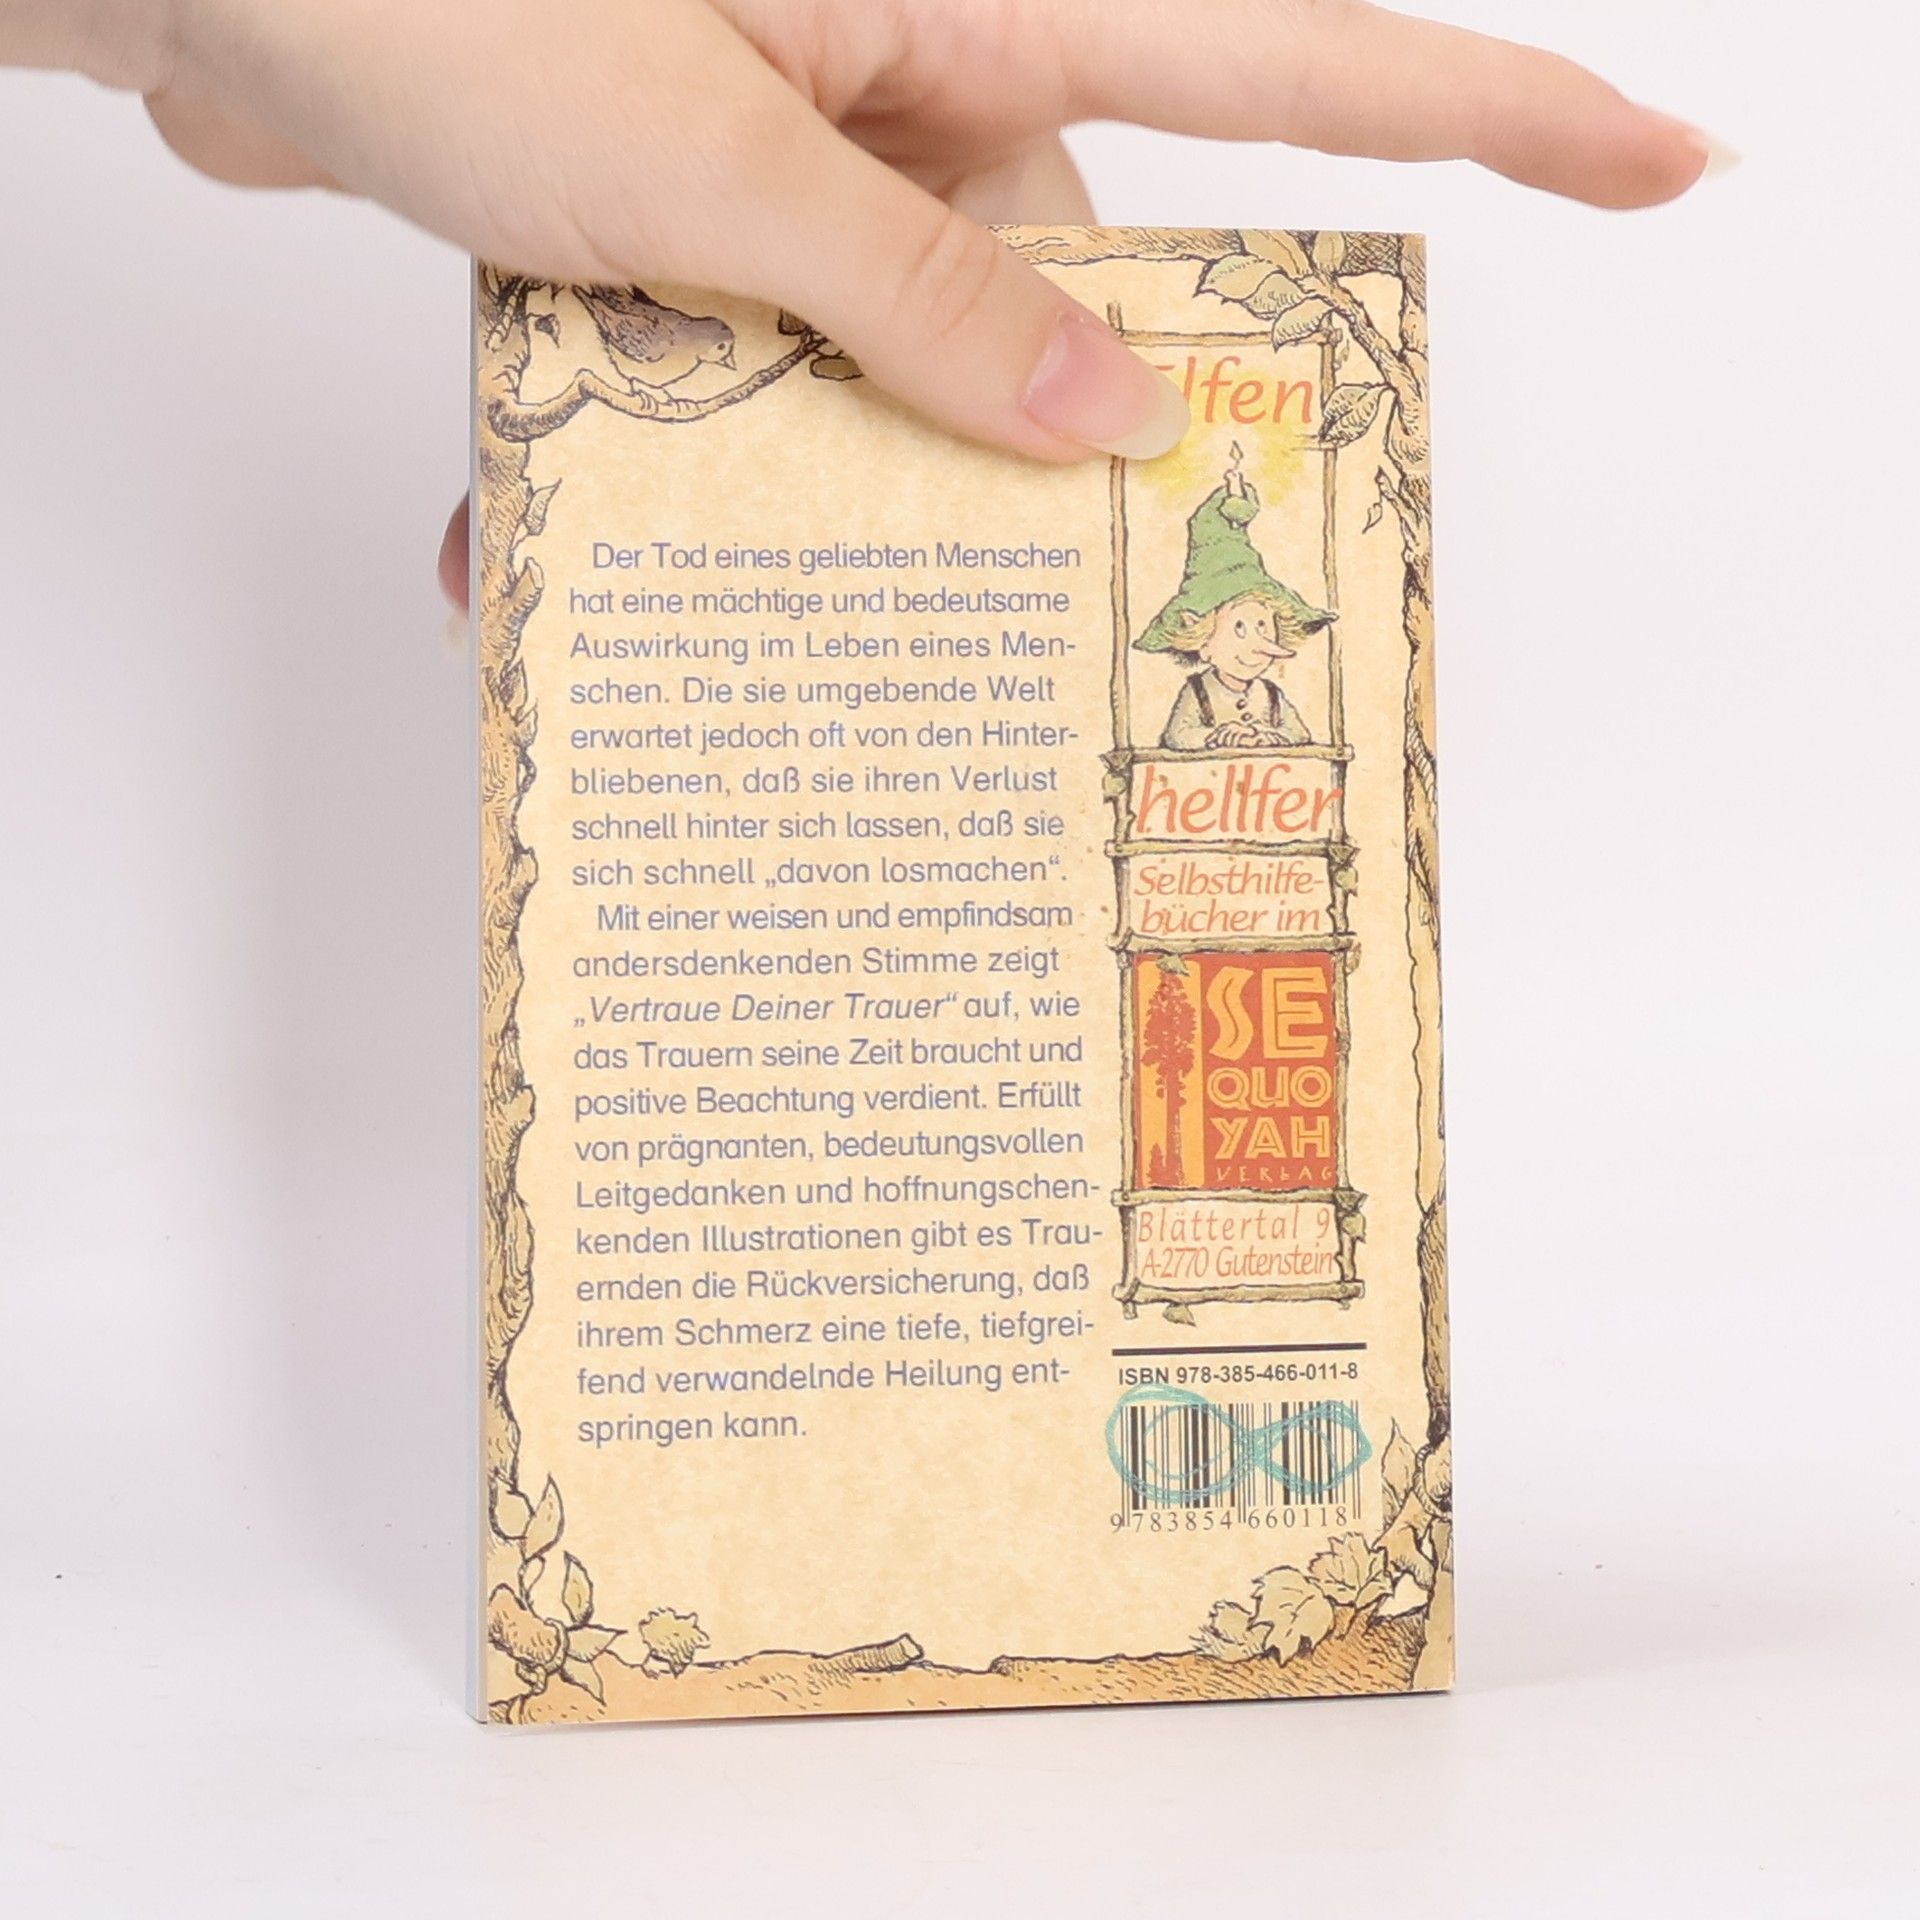 Der Tod eines geliebten Menschen
hat eine mächtige und bedeutsame
Auswirkung im Leben eines Men-
schen. Die sie umgebende Welt
erwartet jedoch oft von den Hinter-
bliebenen, daß sie ihren Verlust
schnell hinter sich lassen, daß sie
sich schnell „davon losmachen“.
Mit einer weisen und empfindsam
andersdenkenden Stimme zeigt
„Vertraue Deiner Trauer“ auf, wie
das Trauern seine Zeit braucht und
positive Beachtung verdient. Erfüllt
von prägnanten, bedeutungsvollen
Leitgedanken und hoffnungschen-
kenden Illustrationen gibt es Trau-
ernden die Rückversicherung, daß
ihrem Schmerz eine tiefe, tiefgrei-
fend verwandelnde Heilung ent-
springen kann.
lfen
hellfer
Selbsthilfe-
bücher im
SE
QUO
YAH
VERLAG
Blättertal 9
A-2770 Gutenstein
ISBN 978-385-466-011-8
9 783854 660118